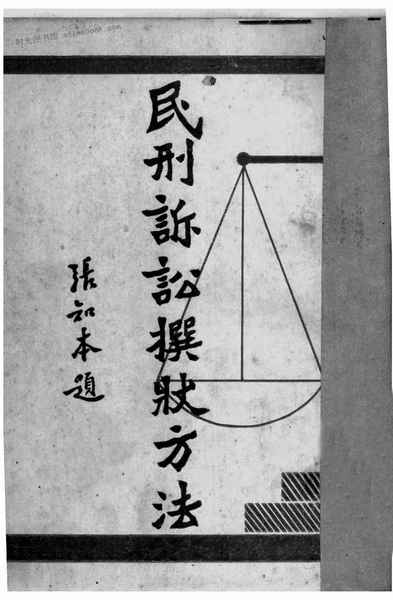 民刑訴訟撰狀方法
張知本題